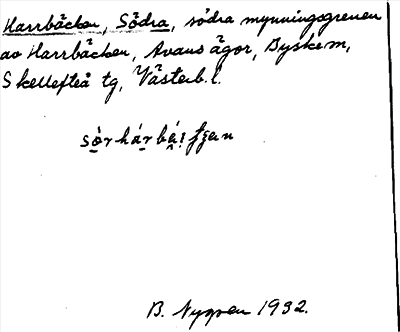 Harrbäcken, Södra, södra mynningsgrenen
av Harrbäcken, Avans ägor, Byske sn,
Skellefteå tg, Västerb. l.
B. Nygren 1932.